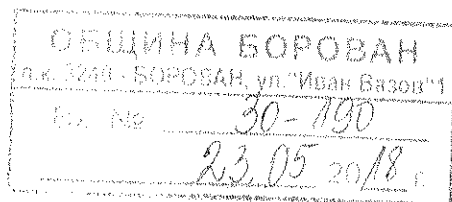 ОБЩИНА БОРОВАН
п.к. 3240 - БОРОВАН, ул."Иван Вазов"1
Вх. №  30-190
23.05 2018 г.